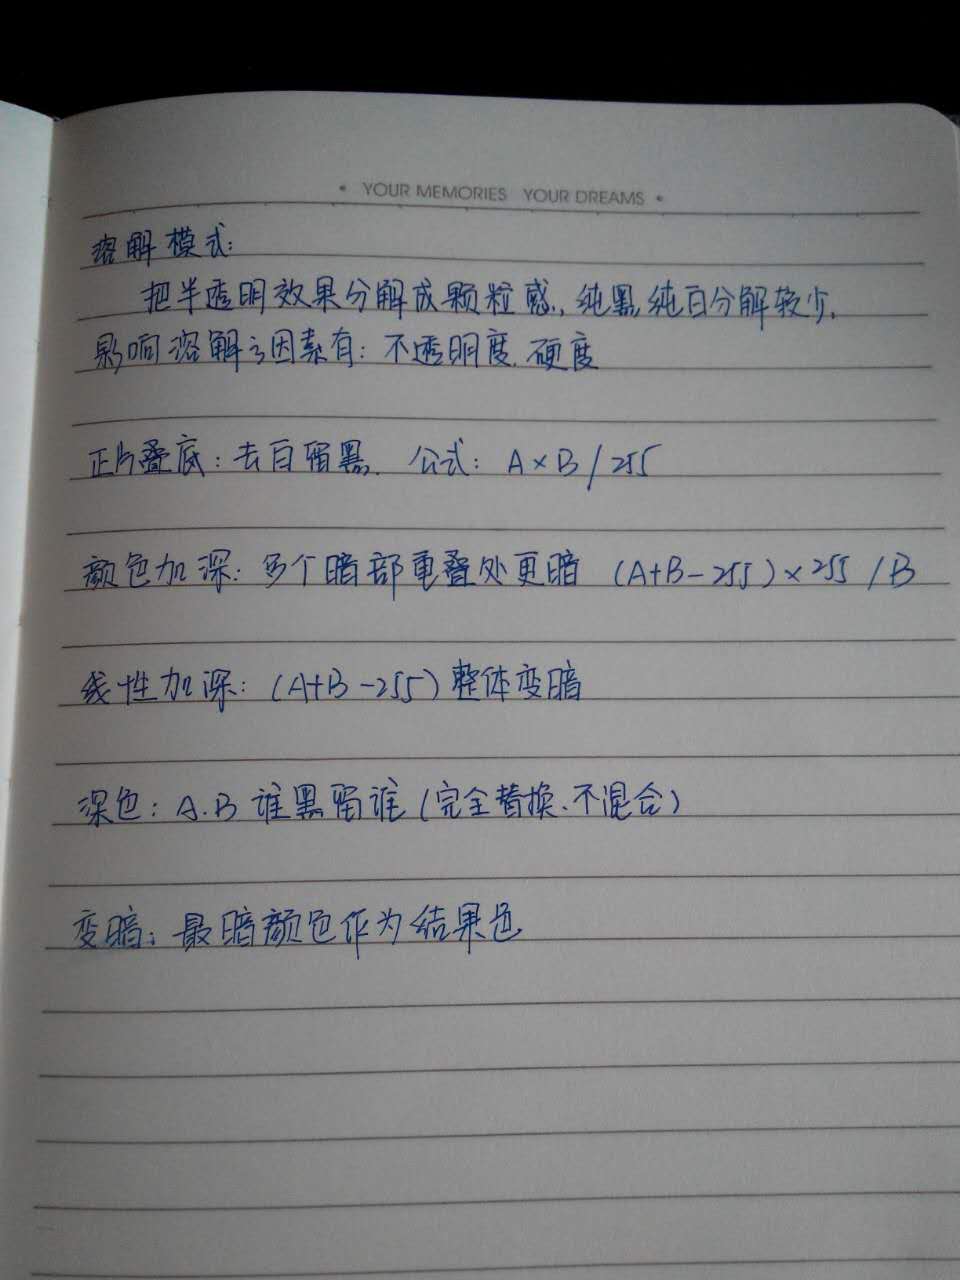 • YOUR MEMORIES YOUR DREAMS •
溶解模式:
把半透明效果分解成颗粒感,纯黑,纯白分解较少,
影响溶解之因素有:不透明度.硬度
正片叠底:去白留黑. 公式: A×B/255
颜色加深:多个暗部重叠处更暗 (A+B-255)×255/B
线性加深:(A+B-255)整体变暗
深色: A.B 谁黑留谁(完全替换.不混合)
变暗:最暗颜色作为结果色